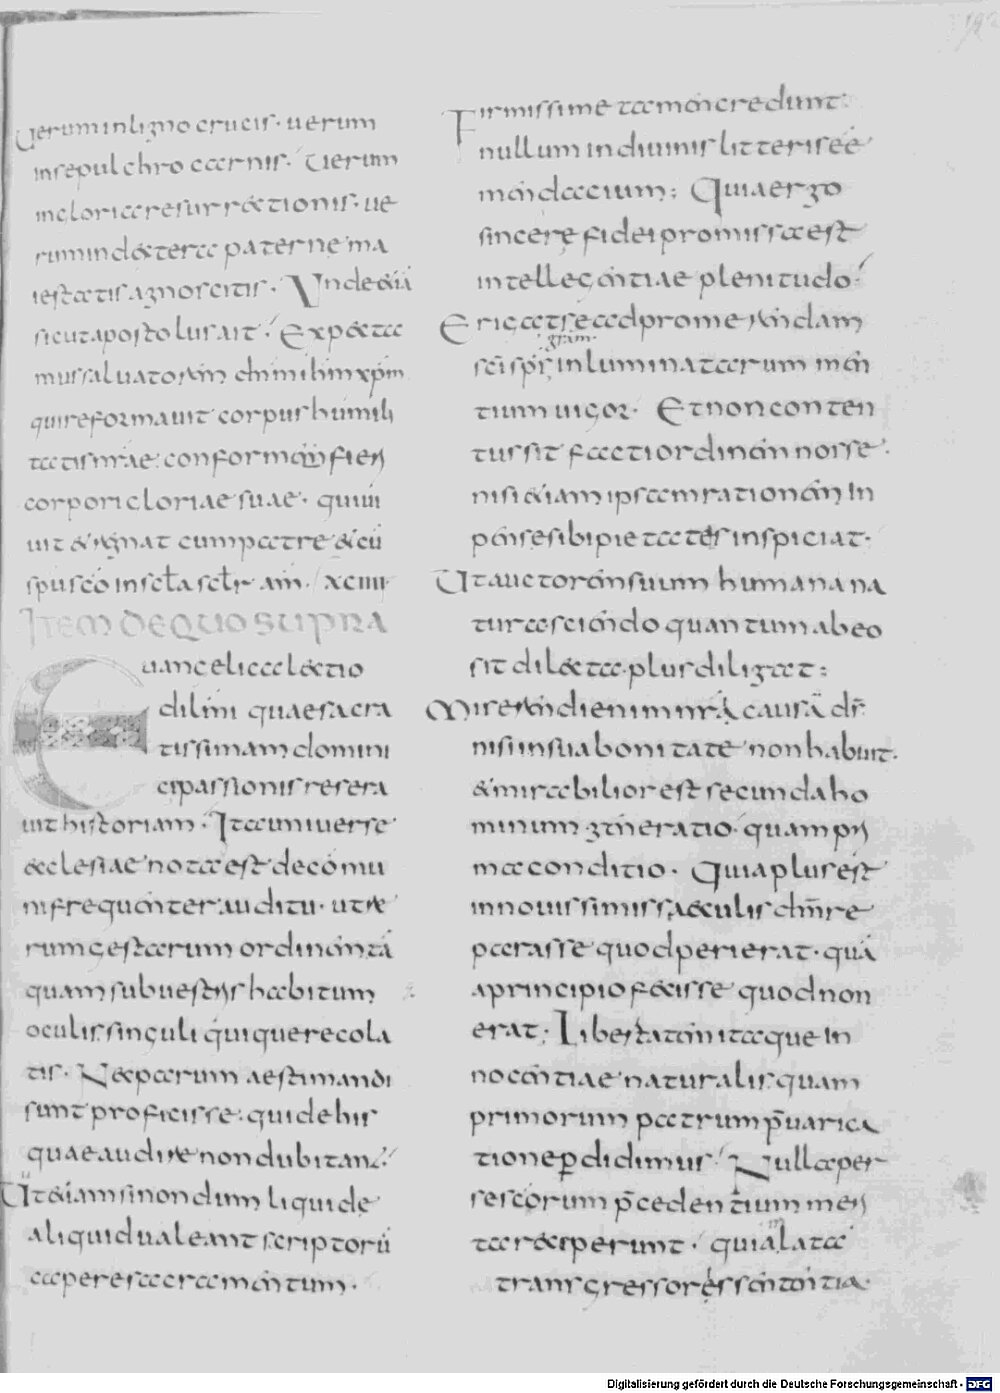 192
Uerum in ligno crucis · uerum
in sepulchro carnis · Uerum
in gloria resurrectionis · ue
rum in dextera paternę ma
iestatis agnoscitis · Unde & iā
sicut apostolus ait · Expecta
mus saluatorem dn̄m ihm̄ xp̄m
qui reformauit corpus humili
tatis nr̄ae · conformem fieri
corpori gloriae suae · qui ui
uit & regnat cum patre & cū
spu sc̄o in scl̄a scl̄r am̄ · XCIIII
ITEM DE QUO SUPRA
Euangelica lectio
dil̄mi quae sacra
tissimam domini
ci passionis resera
uit historiam · Ita uniuersę
ecclesiae nota est de cōmu
ni frequenter auditu · ut re
rum gestarum ordinē tā
quam sub uestris habitum
oculis singuli quique recola
tis · Nec parum aestimandi
sunt proficisse · qui de his
quae audire non dubitant
Ut etiam si nondum liquide
aliqui dualeant scriptorū
aperes acramentum ·
Firmissime tamen credunt
nullum in diuinis litteris eē
mendacium ; Quia ergo
sincerę fidei promissa est
intellegentiae plenitudo ·
Erigat se ad promerendam
grām
sc̄i sp̄s inluminatarum men
tium uigor · Et non conten
tus sit facti ordinem nosse ·
nisi etiam ipsam rationem in
pense sibi pietatis inspiciat ·
Ut auctorem suum humana na
tura sciendo quantum ab eo
sit dilecta · plus diligat :
Miserendi enim nr̄i causā ds̄
nisi in sua bonitate non habuit ·
& mirabilior est secunda ho
minum generatio · quam pri
ma conditio · Quia plus est
in nouissimis saeculis dn̄m re
parasse quod perierat · quā
a principio fecisse quod non
erat · Libertatem itaque in
nocentiae naturalis · quam
primorum patrum p̄uarica
tione p̱didimus · Nulla per
ses corum p̄cedentium meri
ta receperunt · quia lata
m
transgressorēs sententia ·
Digitalisierung gefördert durch die Deutsche Forschungsgemeinschaft - DFG